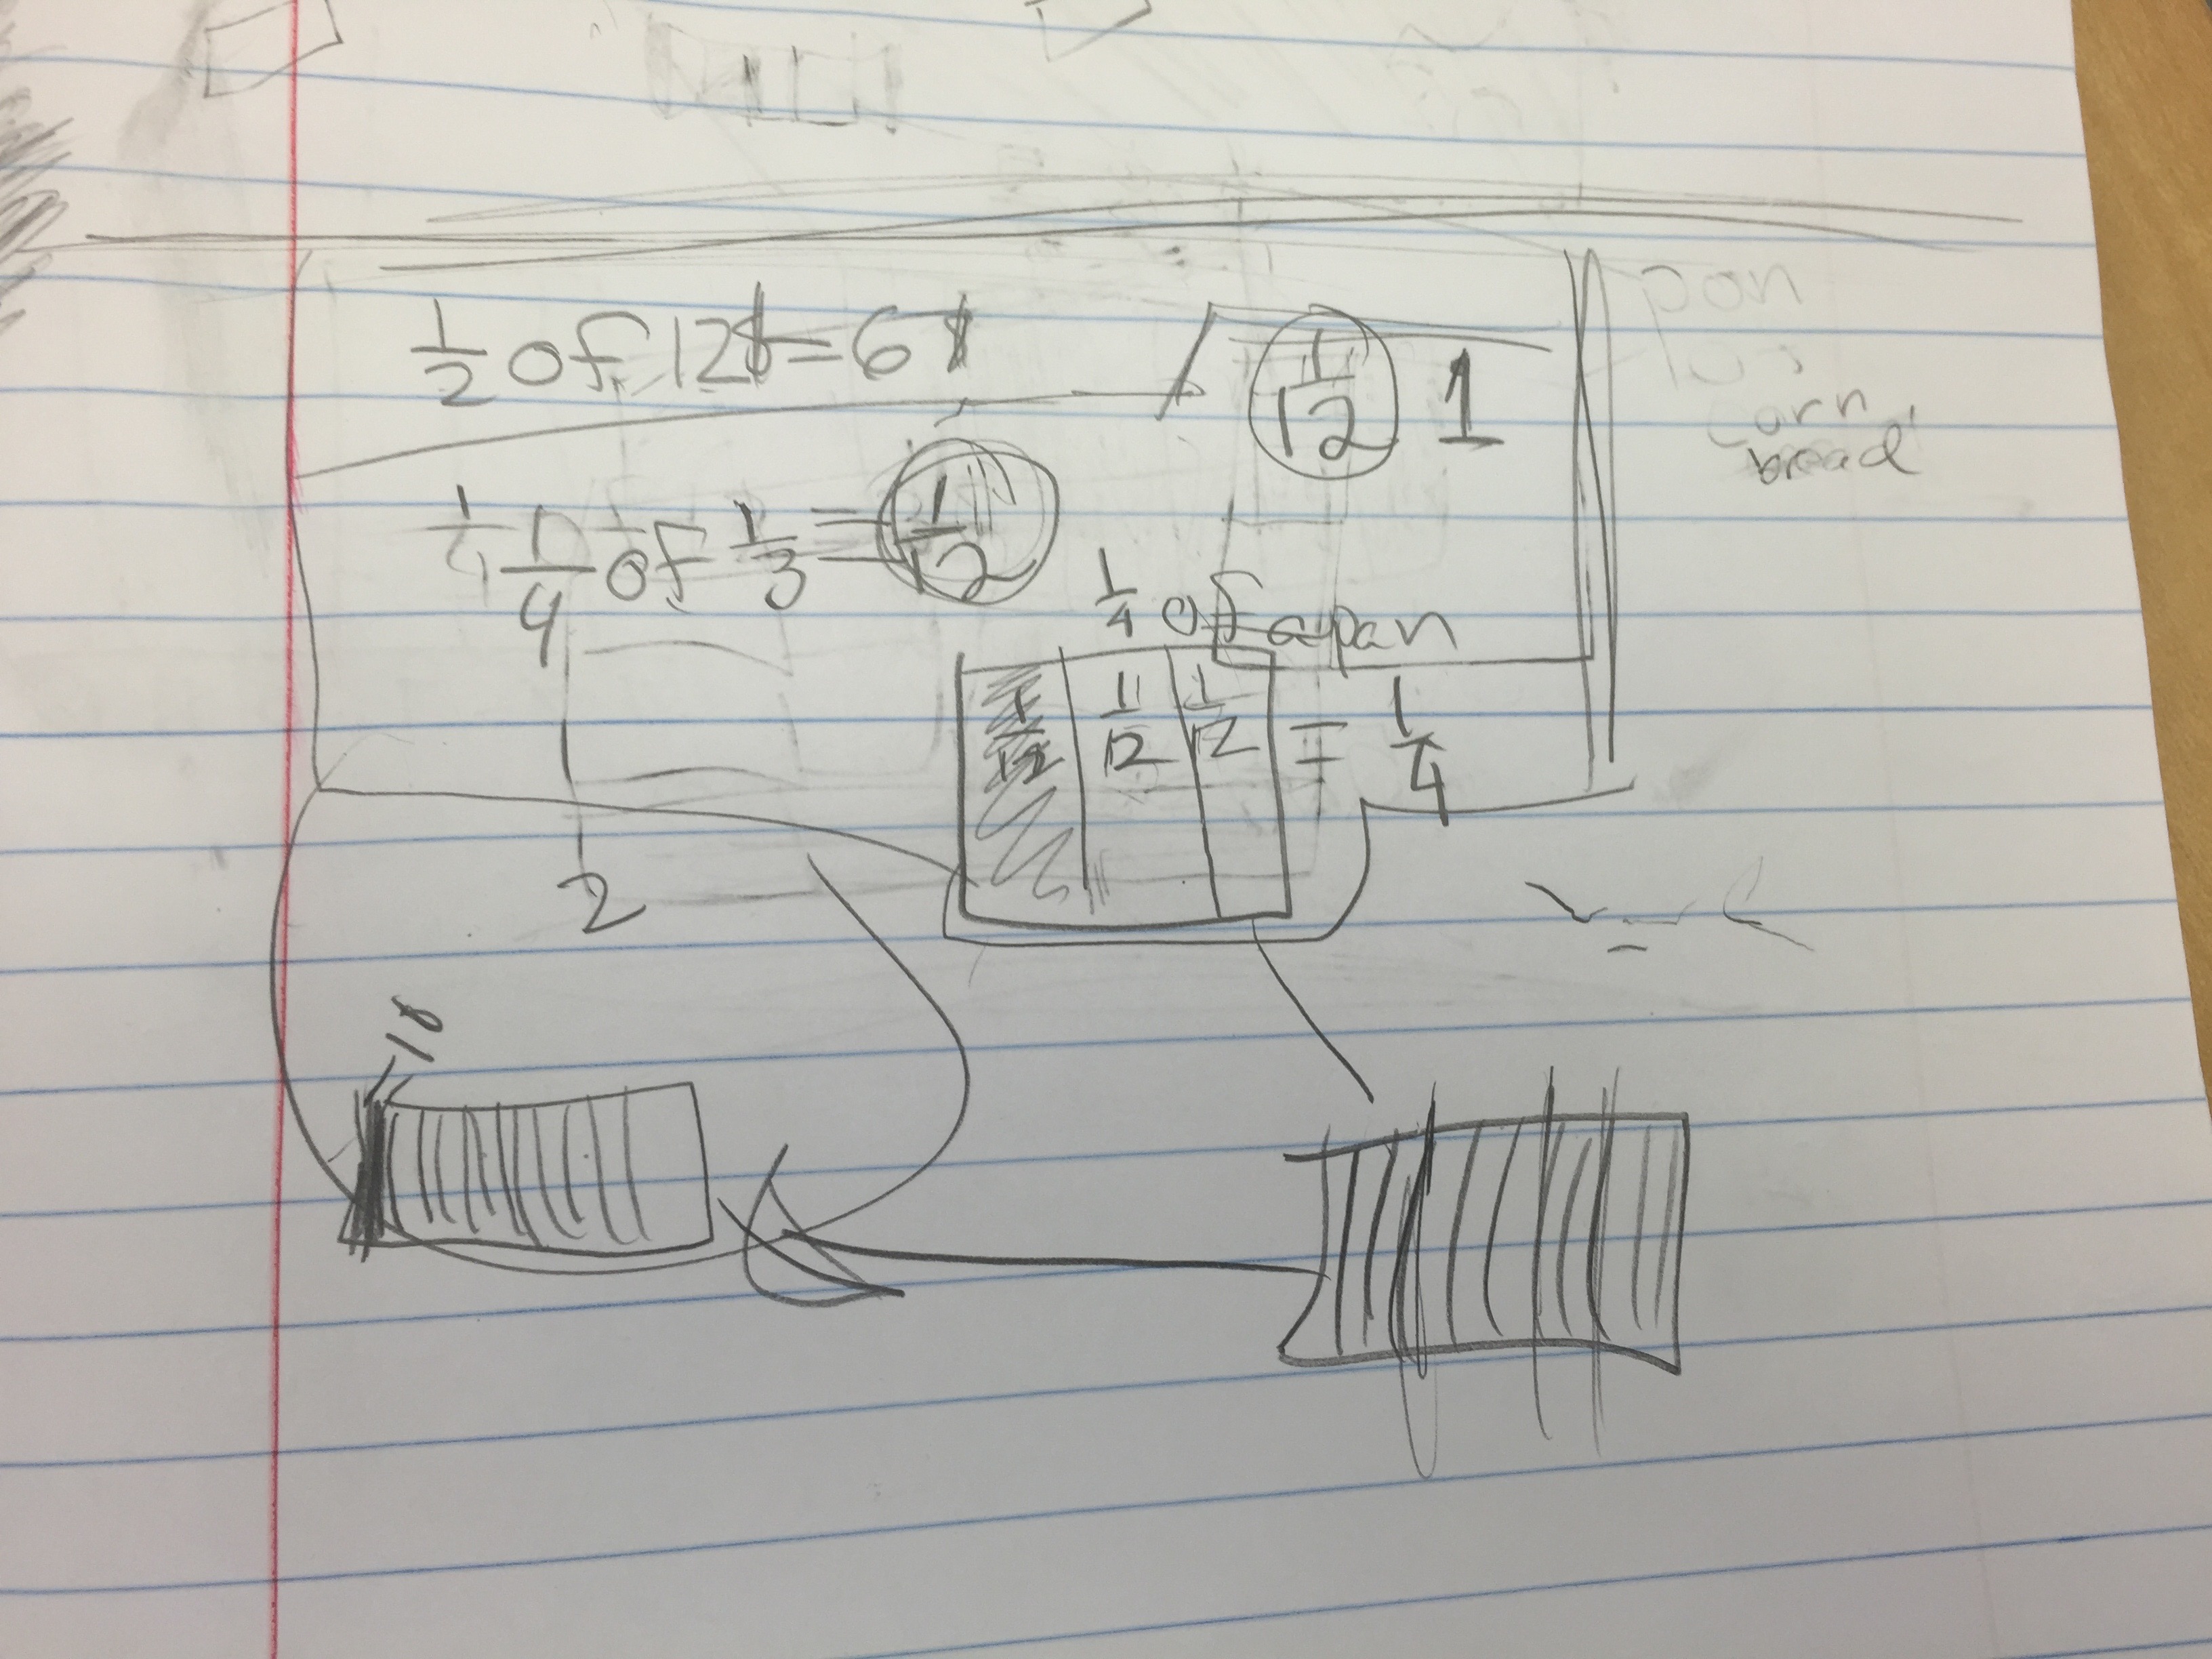 1/2 of 12$ = 6$
1/12 1
corn
bread
1/4 1/4 of 1/3 = 1/12
1/4 of a pan
1/12 1/12 1/12 = 1/4
2